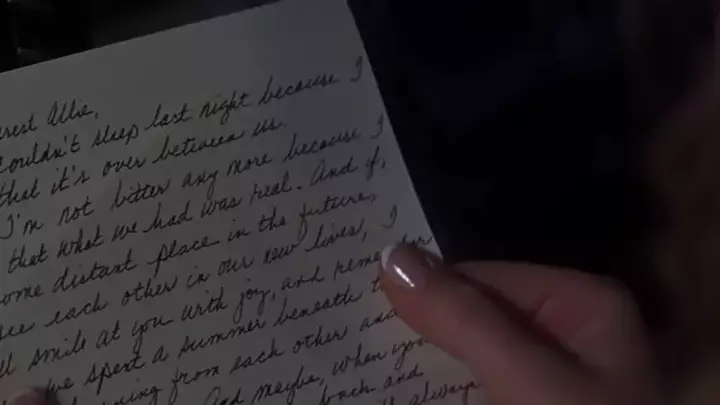 rest Allie,
couldn't sleep last night because I
that it's over between us.
I'm not bitter any more because I
that what we had was real. And if,
ome distant place in the future,
see each other in our new lives, I
ll smile at you with joy, and remember
we spent a summer beneath t
ning from each other and
And maybe, when you
back and
ll always